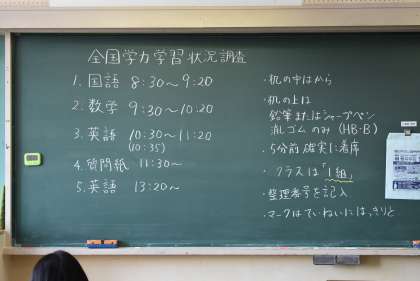 全国学力学習状況調査
1. 国語 8:30～9:20
2. 数学 9:30～10:20
3. 英語 10:30～11:20
(10:35)
4. 質問紙 11:30～
5. 英語 13:20～
・机の中はから
・机の上は
鉛筆またはシャープペン
消しゴム のみ (HB・B)
・5分前 確実に着席
・クラスは「1組」
・整理番号を記入
・マークはていねいにはっきりと